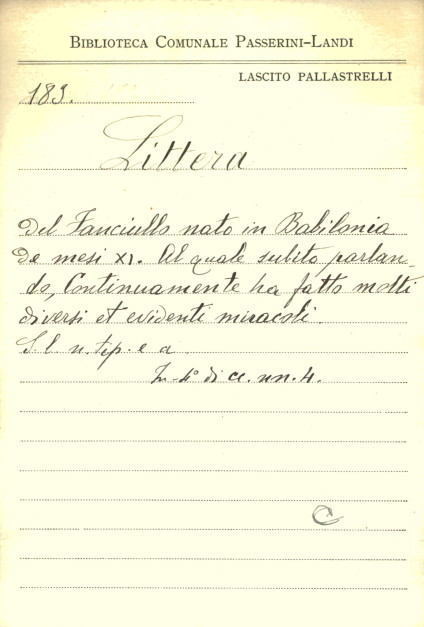 BIBLIOTECA COMUNALE PASSERINI-LANDI
LASCITO PALLASTRELLI
183.
Littera
Del Fanciullo nato in Babilonia
De mesi XI. Al quale subito parlan-
do, Continuamente ha fatto molti
diversi et evidenti miracoli
S. l. n. tip. e a
In 4° di cc. nn. 4.
C